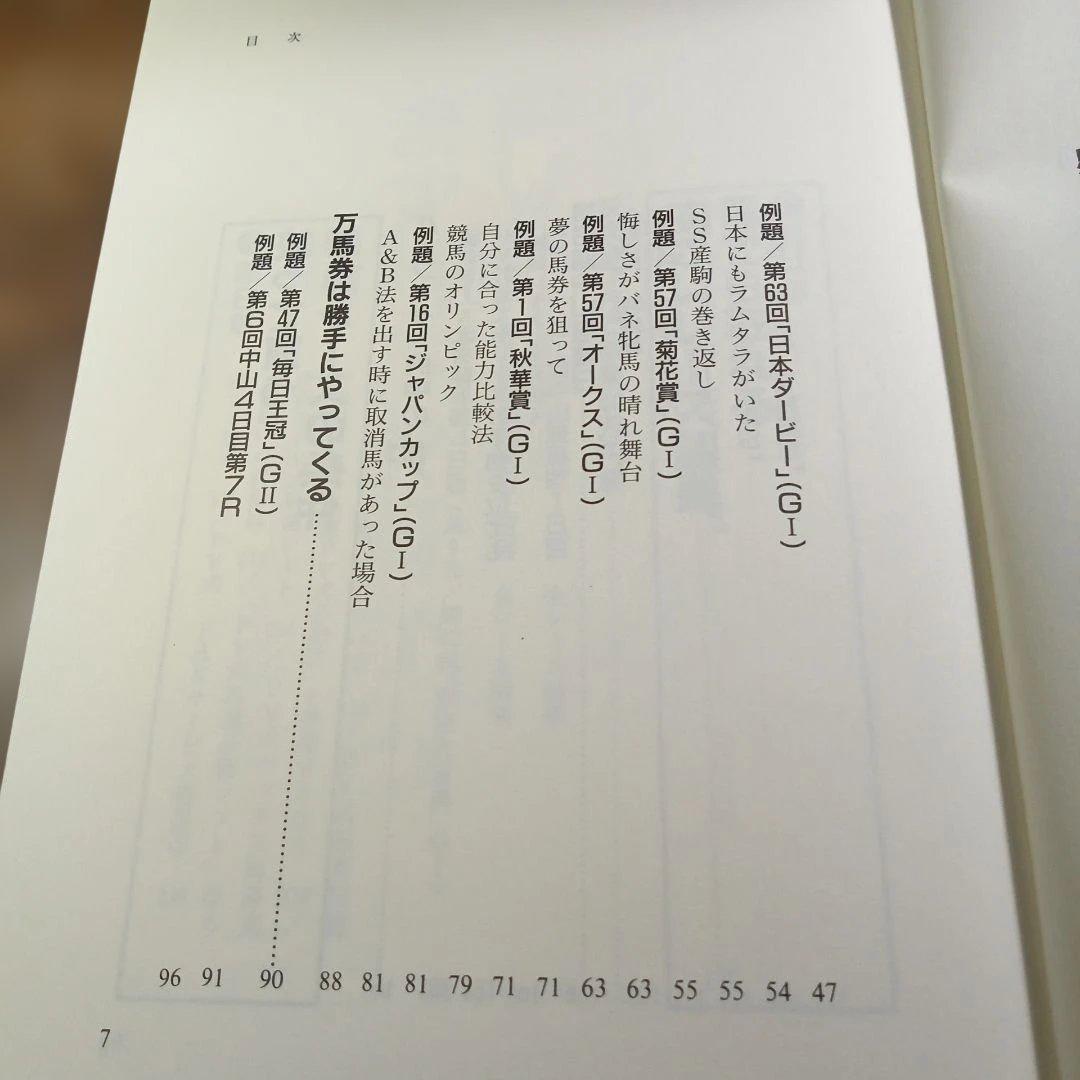 目次
例題／第63回「日本ダービー」(GⅠ) 47
日本にもラムタラがいた 54
SS産駒の巻き返し 55
例題／第57回「菊花賞」(GⅠ) 55
悔しさがバネ牝馬の晴れ舞台 63
例題／第57回「オークス」(GⅠ) 63
夢の馬券を狙って 71
例題／第1回「秋華賞」(GⅠ) 71
自分に合った能力比較法 79
競馬のオリンピック 81
例題／第16回「ジャパンカップ」(GⅠ) 81
A&B法を出す時に取消馬があった場合 88
万馬券は勝手にやってくる 90
例題／第47回「毎日王冠」(GⅡ) 91
例題／第6回中山4日目第7R 96
7